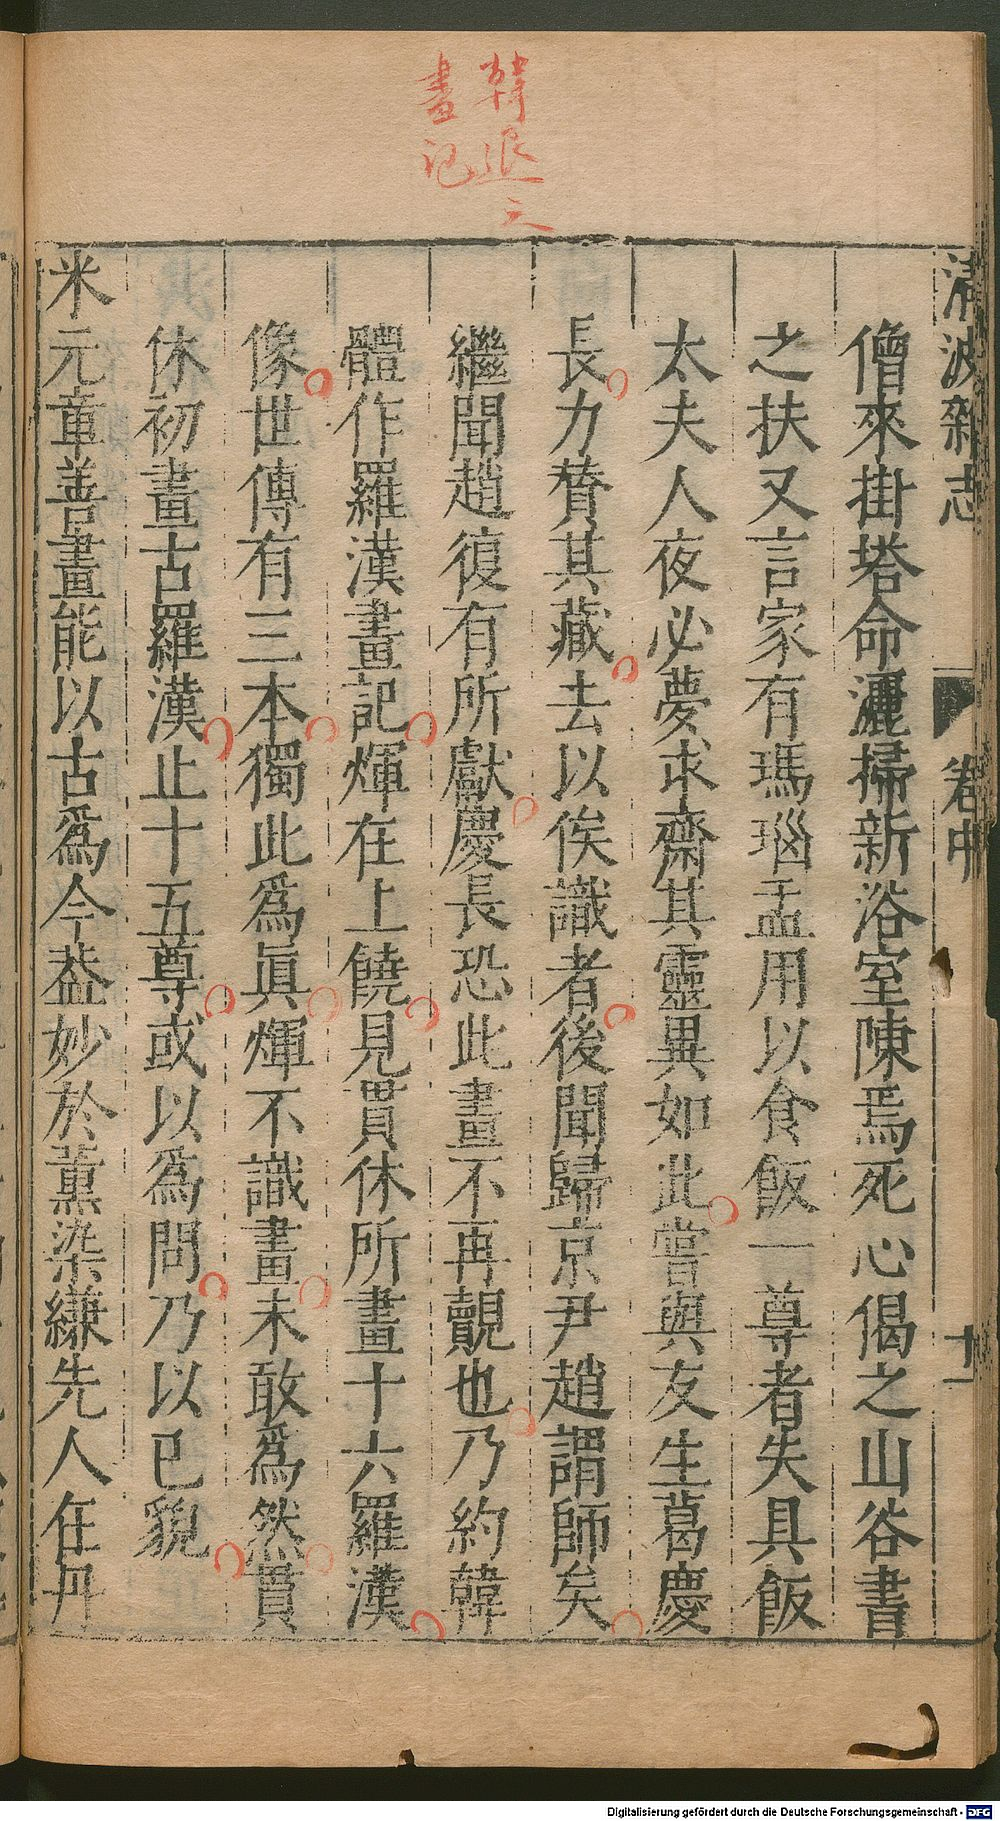 韓退之
畫記
清波雜志 卷中 十一
僧來掛塔命灑掃新浴室陳焉死心偈之山谷書
之扶又言家有瑪瑙盂用以食飯一尊者失具飯
太夫人夜必夢求齋其靈異如此嘗與友生葛慶
長力贊其藏去以俟識者後聞歸京尹趙謂師矣
繼聞趙復有所獻慶長恐此畫不再覿也乃約韓
體作羅漢畫記煇在上饒見貫休所畫十六羅漢
像世傳有三本獨此爲眞煇不識畫未敢爲然貫
休初畫古羅漢止十五尊或以爲問乃以已貌
米元章善畫能以古爲今葢妙於薰染縑先人在丹
Digitalisierung gefördert durch die Deutsche Forschungsgemeinschaft - DFG